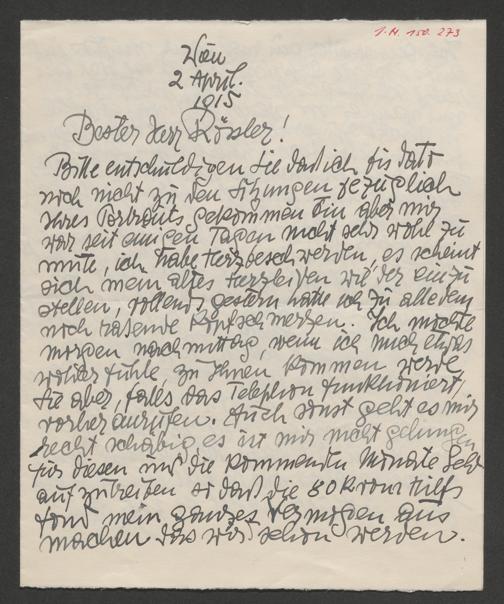 J.N. 150.273
Wien
2 April.
1915
Bester Herr Rössler!
Bitte entschuldigen Sie daß ich bis dato
noch nicht zu den Sitzungen bezüglich
Ihres Porträts gekommen bin aber mir
war seit einigen Tagen nicht sehr wohl zu
mute, ich habe Herzbeschwerden, es scheint
sich mein altes Herzleiden wieder einzu
stellen, vollends gestern hatte ich zu alledem
noch rasende Kopfschmerzen. Ich möchte
morgen nachmittag, wenn ich mich etwas
wohler fühle, zu Ihnen kommen werde
Sie aber, falls das Telephon funktioniert,
vorher anrufen. Auch sonst geht es mir
recht schäbig es ist mir nicht gelungen
für diesen und die kommenden Monate Geld
aufzutreiben so daß die 80 Kronen
mein ganzes Vermögen aus
machen das wird schon werden.